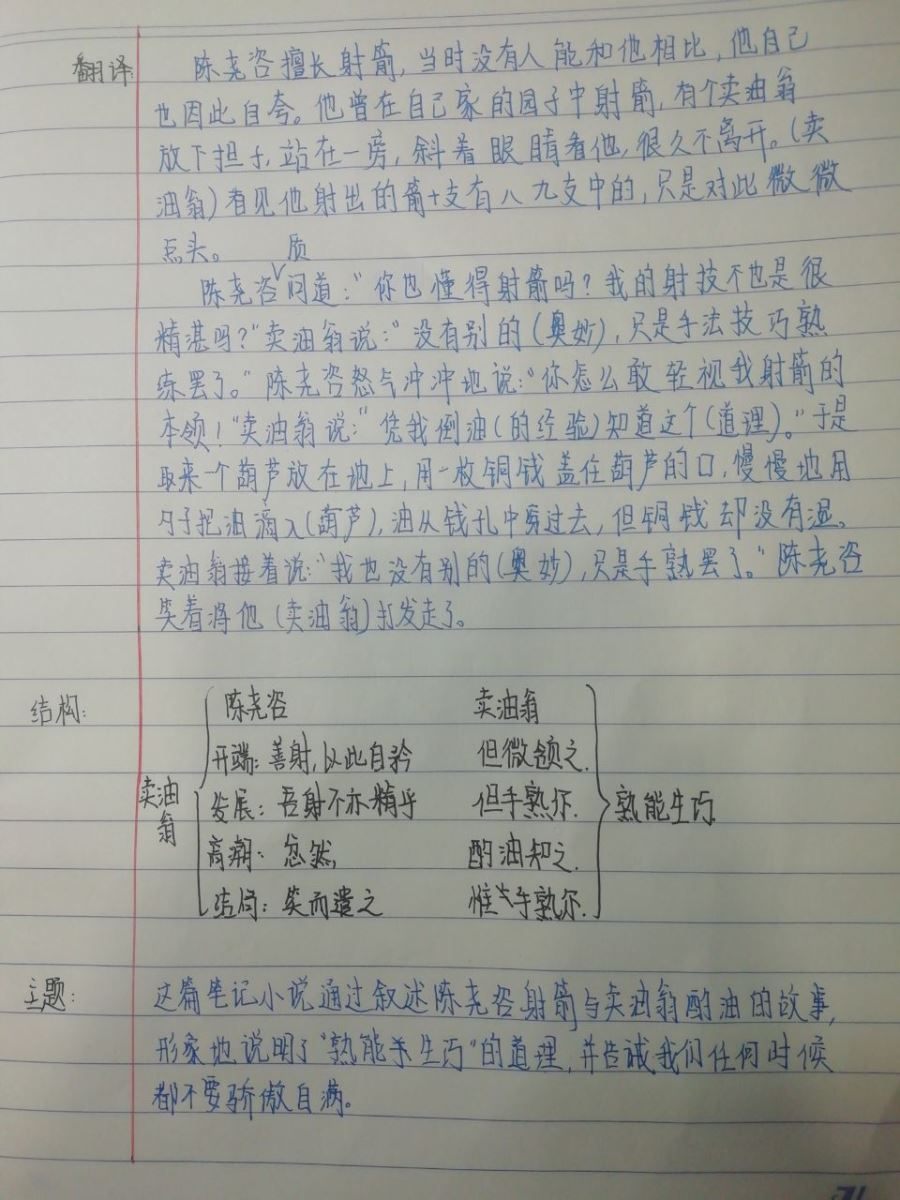 翻译: 陈尧咨擅长射箭,当时没有人能和他相比,他自己
也因此自夸。他曾在自己家的园子中射箭,有个卖油翁
放下担子,站在一旁,斜着眼睛看他,很久不离开。(卖
油翁)看见他射出的箭十支有八九支中的,只是对此微微
点头。
陈尧咨质问道:"你也懂得射箭吗?我的射技不也是很
精湛吗?"卖油翁说:"没有别的(奥妙),只是手法技巧熟
练罢了。"陈尧咨怒气冲冲地说:"你怎么敢轻视我射箭的
本领!"卖油翁说:"凭我倒油(的经验)知道这个(道理)。"于是
取来一个葫芦放在地上,用一枚铜钱盖住葫芦的口,慢慢地用
勺子把油滴入(葫芦),油从钱孔中穿过去,但铜钱却没有湿。
卖油翁接着说:"我也没有别的(奥妙),只是手熟罢了。"陈尧咨
笑着将他(卖油翁)打发走了。
结构: 陈尧咨 卖油翁
开端:善射,以此自矜 但微颔之.
卖油翁 发展:吾射不亦精乎 但手熟尔. 熟能生巧.
高潮:忿然, 酌油知之.
结局:笑而遣之 惟手熟尔.
主题: 这篇笔记小说通过叙述陈尧咨射箭与卖油翁酌油的故事,
形象地说明了"熟能生巧"的道理,并告诫我们任何时候
都不要骄傲自满。